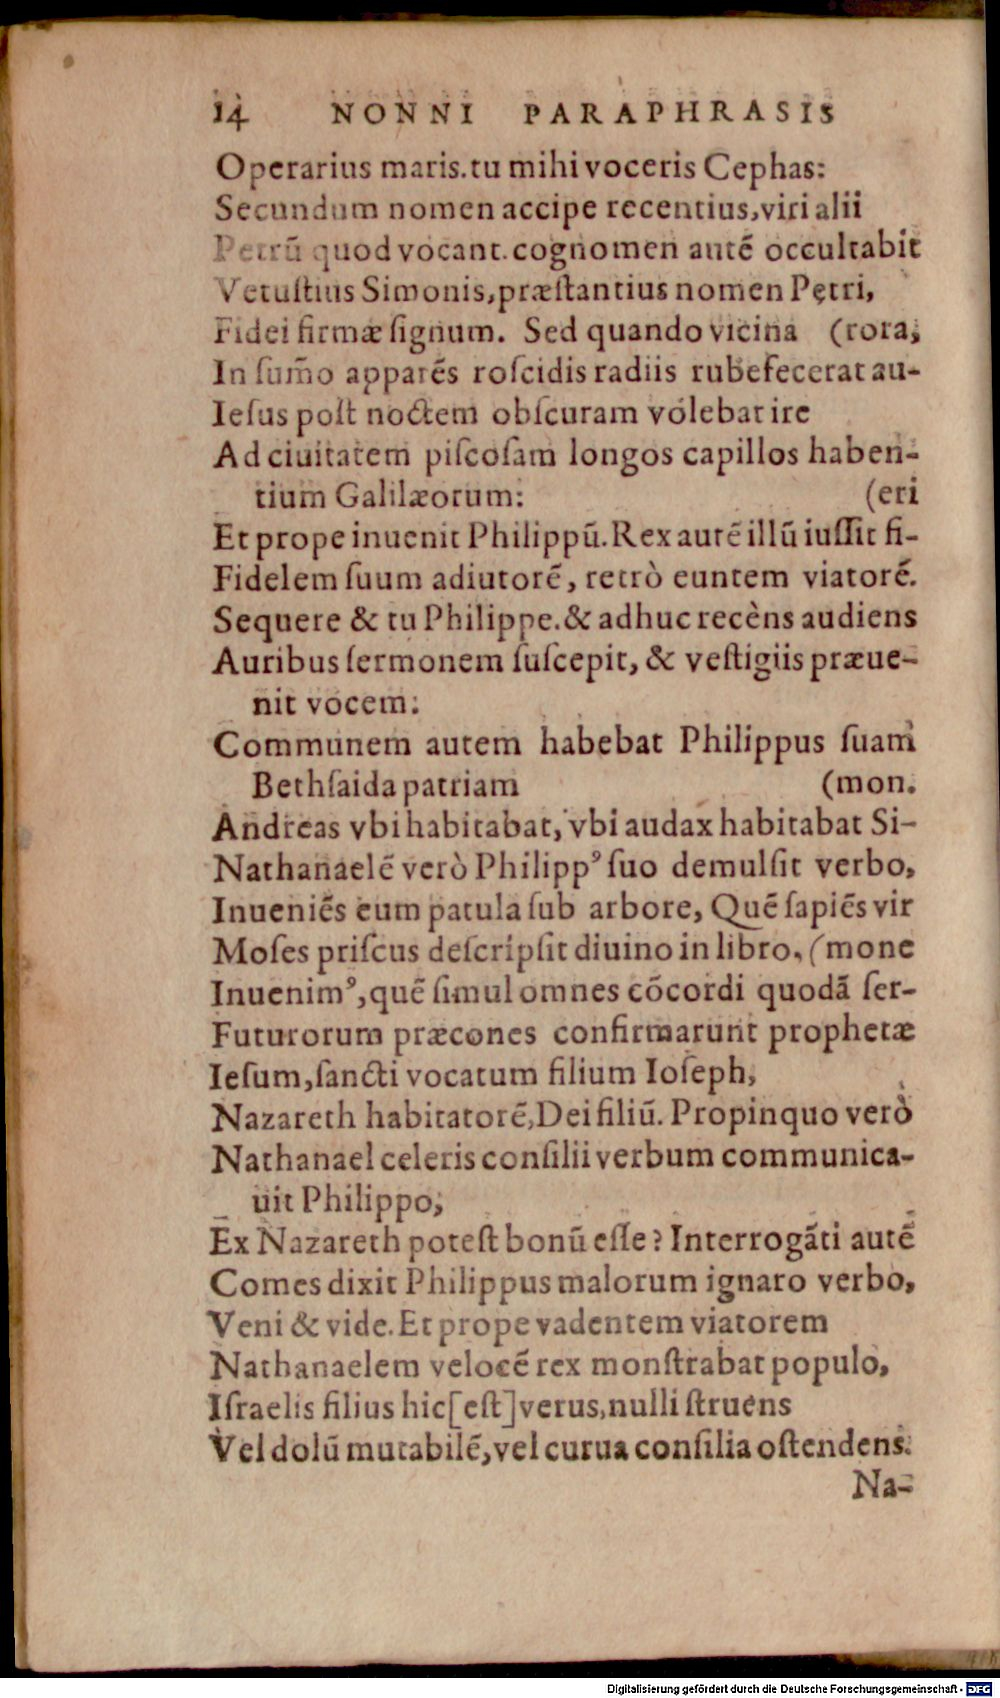 14 NONNI PARAPHRASIS
Operarius maris. tu mihi voceris Cephas:
Secundum nomen accipe recentius, viri alii
Petrũ quod vocant. cognomen autẽ occultabit
Vetuſtius Simonis, præſtantius nomen Petri,
Fidei firmæ ſignum. Sed quando vicina (rora,
In ſum̃o apparẽs roſcidis radiis rubefecerat au-
Ieſus poſt noctem obſcuram volebat ire
Ad ciuitatem piſcoſam longos capillos haben-
tium Galilæorum: (eri
Et prope inuenit Philippũ. Rex autẽ illũ iuſſit fi-
Fidelem ſuum adiutorẽ, retrò euntem viatorẽ.
Sequere & tu Philippe. & adhuc recèns audiens
Auribus ſermonem ſuſcepit, & veſtigiis præue-
nit vocem:
Communem autem habebat Philippus ſuam
Bethſaida patriam (mon.
Andreas vbi habitabat, vbi audax habitabat Si-
Nathanaelẽ verò Philippꝰ ſuo demulſit verbo,
Inueniẽs eum patula ſub arbore, Quẽ ſapiẽs vir
Moſes priſcus deſcripſit diuino in libro, (mone
Inuenimꝰ, quẽ ſimul omnes cõcordi quodã ſer-
Futurorum præcones confirmarunt prophetæ
Ieſum, ſancti vocatum filium Ioſeph,
Nazareth habitatorẽ, Dei filiũ. Propinquo verò
Nathanael celeris conſilii verbum communica-
uit Philippo;
Ex Nazareth poteſt bonũ eſſe? Interrogãti autẽ
Comes dixit Philippus malorum ignaro verbo,
Veni & vide. Et prope vadentem viatorem
Nathanaelem velocẽ rex monſtrabat populo,
Iſraelis filius hic [eſt] verus, nulli ſtruens
Vel dolũ mutabilẽ, vel curua conſilia oſtendens.
Na-
Digitalisierung gefördert durch die Deutsche Forschungsgemeinschaft - DFG